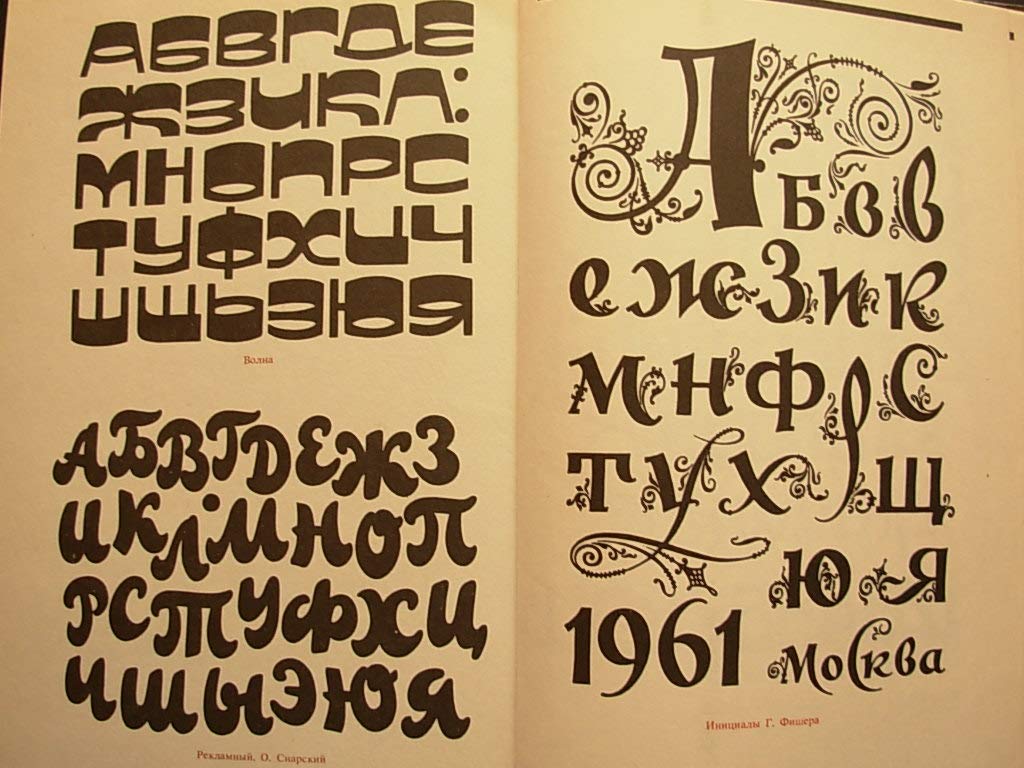 АБВГДЕ
ЖЗИКЛ:
МНОПРС
ТУФХЦЧ
ШЩЬЭЮЯ
Волна
АБВГДЕЖЗ
ИКЛМНОП
РСТУФХЦ
ЧШЫЭЮЯ
Рекламный, О. Снарский
А Б в в
е ж З и к
м н ф р С
т у х щ
Ю-Я
1961 Москва
Инициалы Г. Фишера